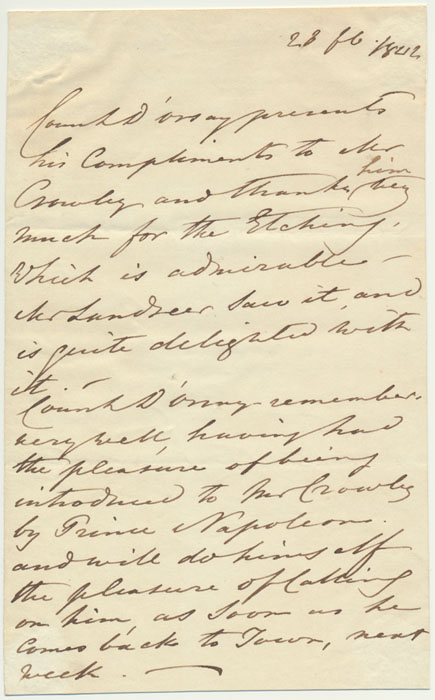 23 fb. 1842
Count D'orsay presents
his Compliments to Mr
Crowley and thanks him very
much for the Etching,
Which is admirable —
Mr Landseer Saw it, and
is quite delighted with
it. —
Count D'Orsay remember
very well, having had
the pleasure of being
introduced to Mr Crowley
by Prince Napoleon.
and will do himself
the pleasure of Calling
on him, as Soon as he
comes back to Town, next
week. —